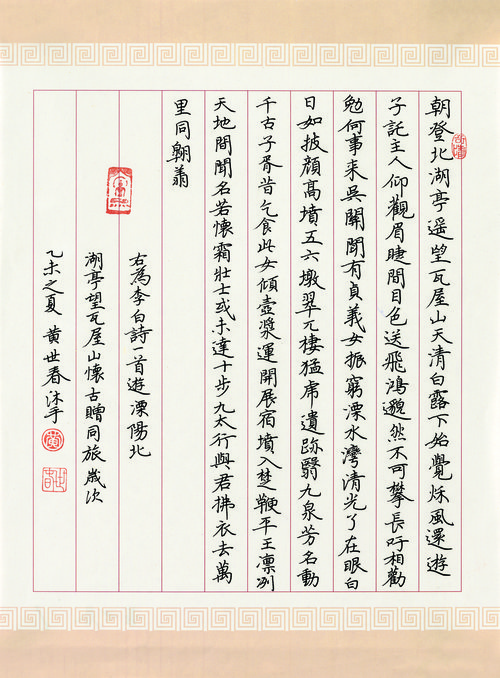 朝登北湖亭遥望瓦屋山天清白露下始覺秌風還遊
子託主人仰觀眉睫間目色送飛鴻邈然不可攀長吁相勸
勉何事来吳關聞有貞義女振窮溧水灣清光了在眼白
日如披顔高墳五六墩崒兀棲猛虎遺跡翳九泉芳名動
千古子胥昔乞食此女傾壺漿運開展宿墳入楚鞭平王凛冽
天地間聞名若懷霜壯士或未達十步九太行與君拂衣去萬
里同翱翔
右為李白詩一首遊溧陽北
湖亭望瓦屋山懷古贈同旅歲次
乙未之夏黄世春沐手